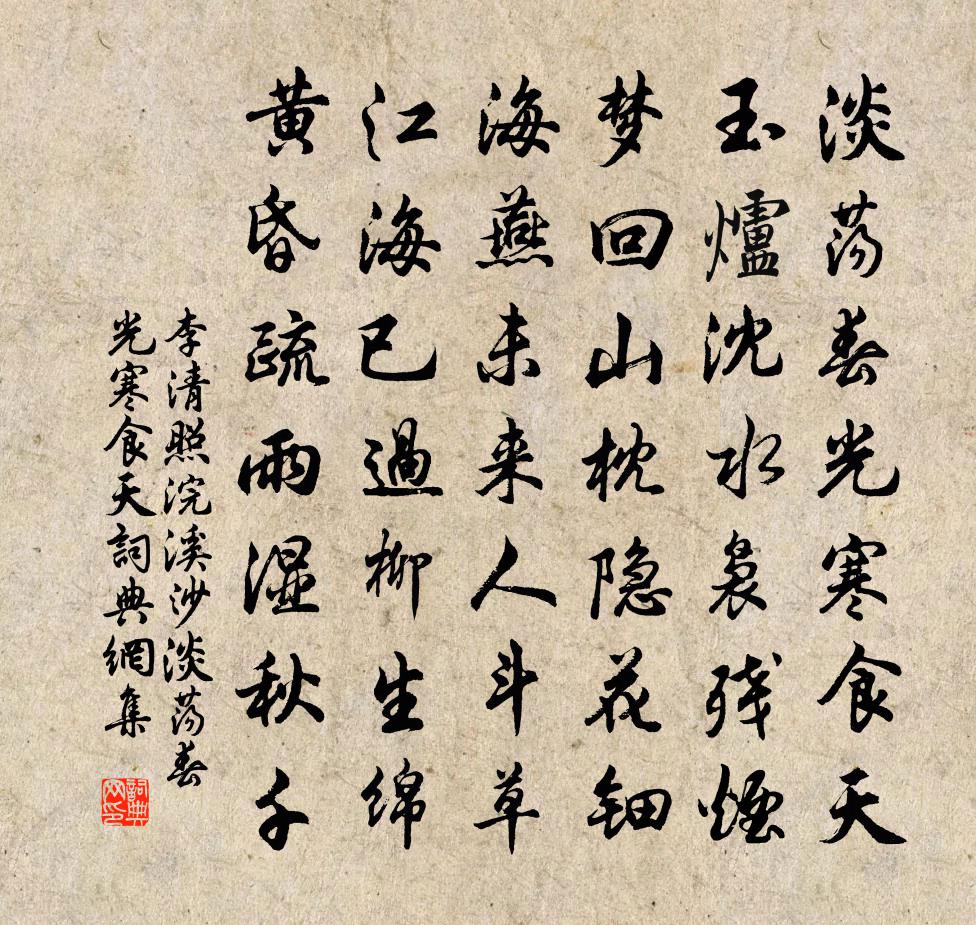 淡荡春光寒食天
玉爐沈水裊残煙
梦回山枕隐花鈿
海燕未来人斗草
江海已過柳生绵
黄昏疏雨湿秋千
李清照浣溪沙淡荡春
光寒食天詞典網集
詞典网印